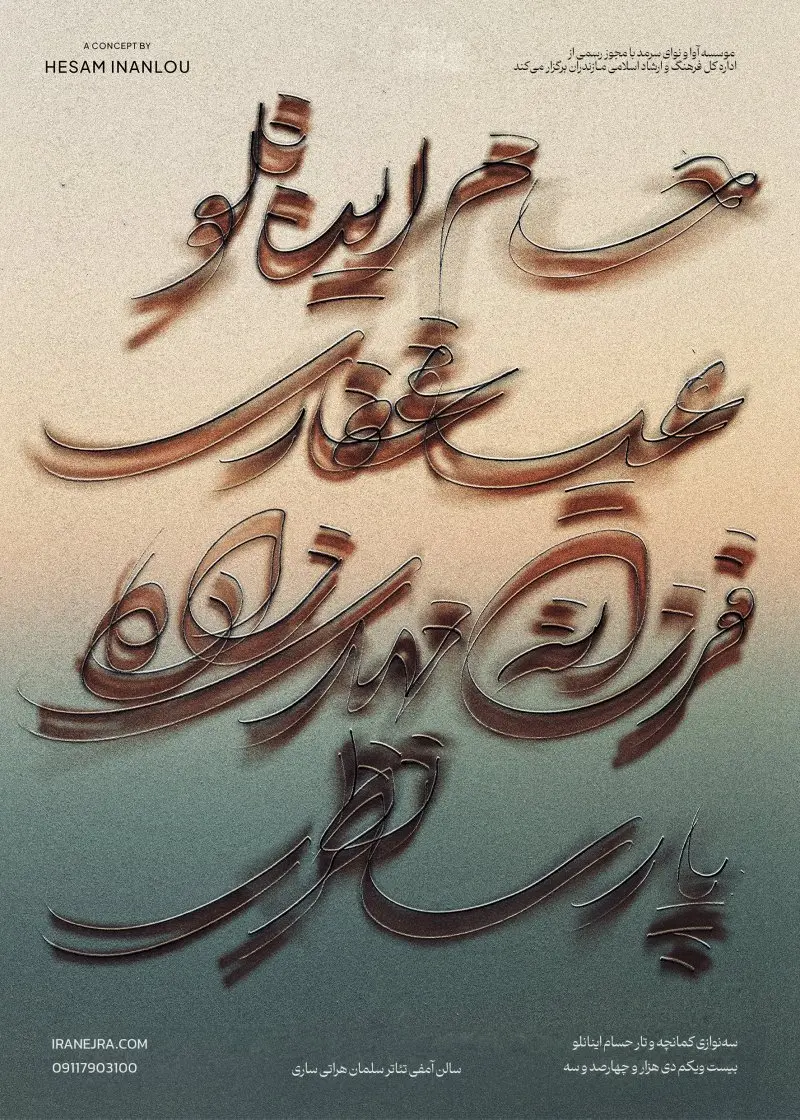 A CONCEPT BY
HESAM INANLOU
موسسه آوا و نوای سرمد با مجوز رسمی از
اداره کل فرهنگ و ارشاد اسلامی مازندران برگزار می‌کند
حسام اینانلو
عیسی غفاری
فرزانه
پارسا نظری
سه‌نوازی کمانچه و تار حسام اینانلو
بیست ویکم دی هزار و چهارصد و سه
سالن آمفی تئاتر سلمان هراتی ساری
IRANEJRA.COM
09117903100